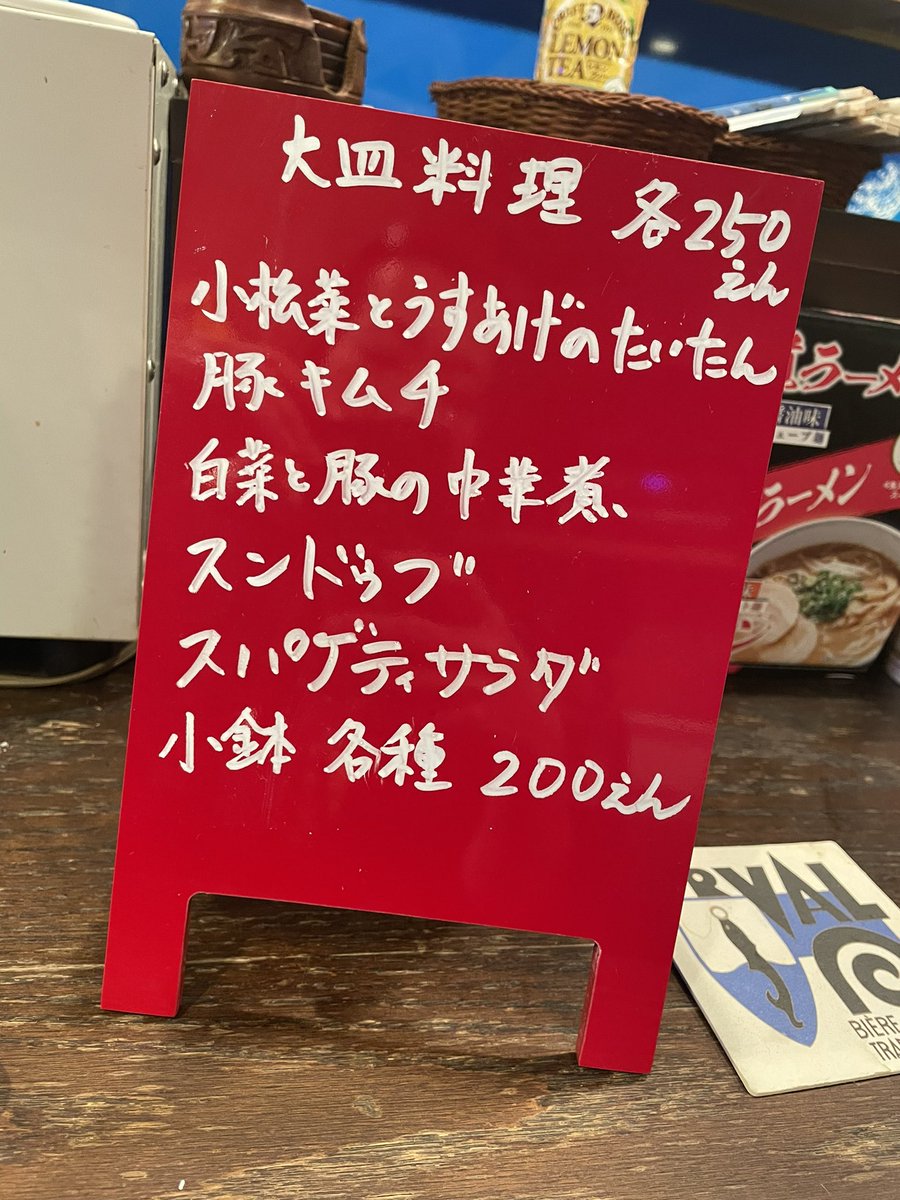 LEMON
TEA
大皿料理 各250
えん
小松菜とうすあげのたいたん
豚キムチ
白菜と豚の中華煮
スンドゥブ
スパゲティサラダ
小鉢 各種 200えん
ラーメン
醤油味
ラーメン
RVAL
BIÈRE
TRA